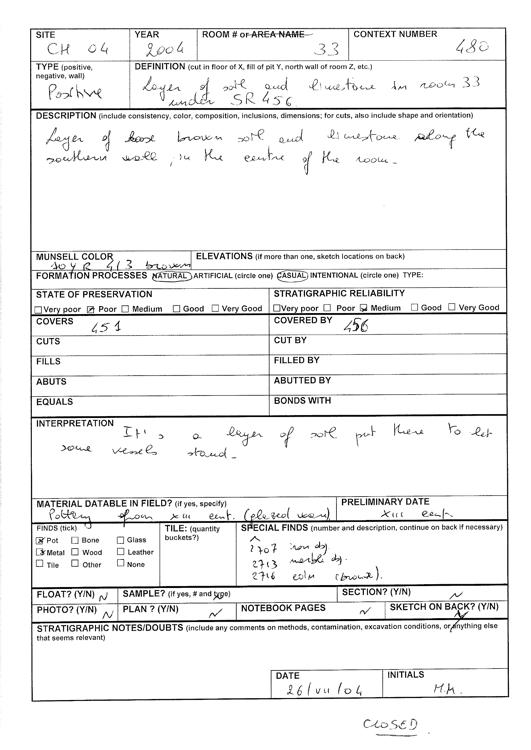 SITE YEAR ROOM # or AREA NAME CONTEXT NUMBER
CH 04 2004 33 480
TYPE (positive, negative, wall) DEFINITION (cut in floor of X, fill of pit Y, north wall of room Z, etc.)
Positive Layer of soil and limestone in room 33
under SR 456
DESCRIPTION (include consistency, color, composition, inclusions, dimensions; for cuts, also include shape and orientation)
Layer of loose brown soil and limestone along the
southern wall, in the centre of the room.
MUNSELL COLOR ELEVATIONS (if more than one, sketch locations on back)
10YR 4/3 brown
FORMATION PROCESSES NATURAL ARTIFICIAL (circle one) CASUAL INTENTIONAL (circle one) TYPE:
STATE OF PRESERVATION STRATIGRAPHIC RELIABILITY
Very poor Poor Medium Good Very Good Very poor Poor Medium Good Very Good
COVERS 451 COVERED BY 456
CUTS CUT BY
FILLS FILLED BY
ABUTS ABUTTED BY
EQUALS BONDS WITH
INTERPRETATION
It's a layer of soil put there to let
some vessels stand.
MATERIAL DATABLE IN FIELD? (if yes, specify) PRELIMINARY DATE
Pottery from XIII cent. (glazed ware) XIII cent.
FINDS (tick) TILE: (quantity buckets?) SPECIAL FINDS (number and description, continue on back if necessary)
Pot Bone Glass
Metal Wood Leather
Tile Other None
2707 iron obj.
2713 marble obj.
2716 coin (bronze).
FLOAT? (Y/N) N SAMPLE? (if yes, # and type) SECTION? (Y/N) N
PHOTO? (Y/N) N PLAN ? (Y/N) N NOTEBOOK PAGES N SKETCH ON BACK? (Y/N) N
STRATIGRAPHIC NOTES/DOUBTS (include any comments on methods, contamination, excavation conditions, or anything else
that seems relevant)
DATE INITIALS
26/VII/04 M.M.
CLOSED